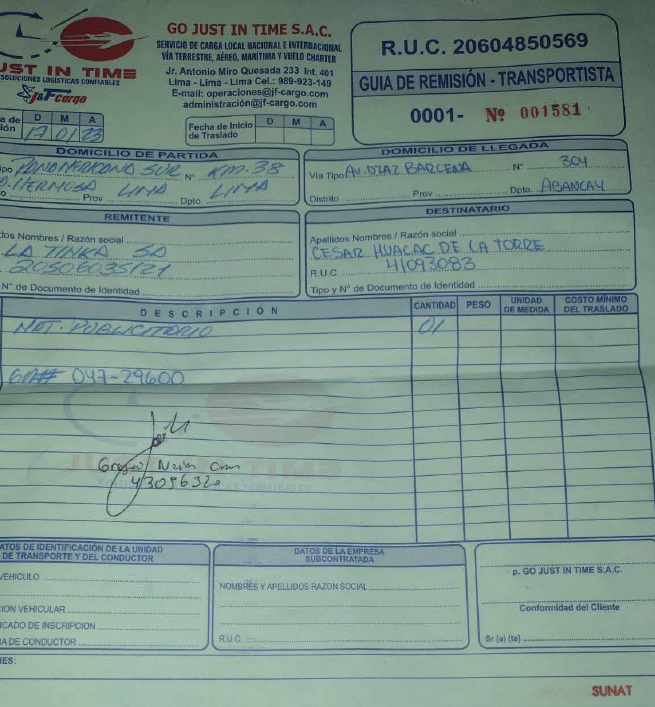 GO JUST IN TIME S.A.C.
SERVICIO DE CARGA LOCAL NACIONAL E INTERNACIONAL
VÍA TERRESTRE, AÉREO, MARÍTIMA Y VUELO CHARTER
Jr. Antonio Miro Quesada 233 Int. 401
Lima - Lima - Lima Cel.: 989-923-149
E-mail: operaciones@jf-cargo.com
administración@jf-cargo.com
UST IN TIME
SOLUCIONES LOGÍSTICAS CONFIABLES
J&F cargo
R.U.C. 20604850569
GUIA DE REMISIÓN - TRANSPORTISTA
0001- Nº 001581
a de
ión
D M A
17 01 23
Fecha de Inicio
de Traslado
D M A
DOMICILIO DE PARTIDA
ipo PANAMERICANA SUR N° KM. 38
HERMOSA Prov LIMA Dpto. LIMA
DOMICILIO DE LLEGADA
Via Tipo AV. DIAZ BARCENA N° 304
Distrito Prov Dpto. ABANCAY
REMITENTE
dos Nombres / Razón social
LA TINKA SA
20506035121
N° de Documento de Identidad
DESTINATARIO
Apellidos Nombres / Razón social
CESAR HUACAC DE LA TORRE
R.U.C. 41093083
Tipo y N° de Documento de Identidad
DESCRIPCIÓN CANTIDAD PESO UNIDAD DE MEDIDA COSTO MÍNIMO DEL TRASLADO
MAT. PUBLICITORIO 01
047-29600
ATOS DE IDENTIFICACIÓN DE LA UNIDAD
DE TRANSPORTE Y DEL CONDUCTOR
VEHICULO
ION VEHICULAR
ICADO DE INSCRIPCION
IA DE CONDUCTOR
DATOS DE LA EMPRESA
SUBCONTRATADA
NOMBRES Y APELLIDOS RAZON SOCIAL
R.U.C.
p. GO JUST IN TIME S.A.C.
Conformidad del Cliente
Sr (a) (ta)
NES:
SUNAT